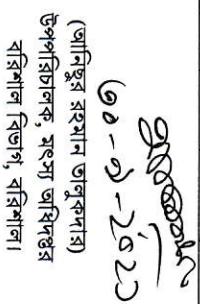 ৩০-০৭-২০২৩
(আনিছুর রহমান তালুকদার)
উপপরিচালক, মৎস্য অধিদপ্তর
বরিশাল বিভাগ, বরিশাল।